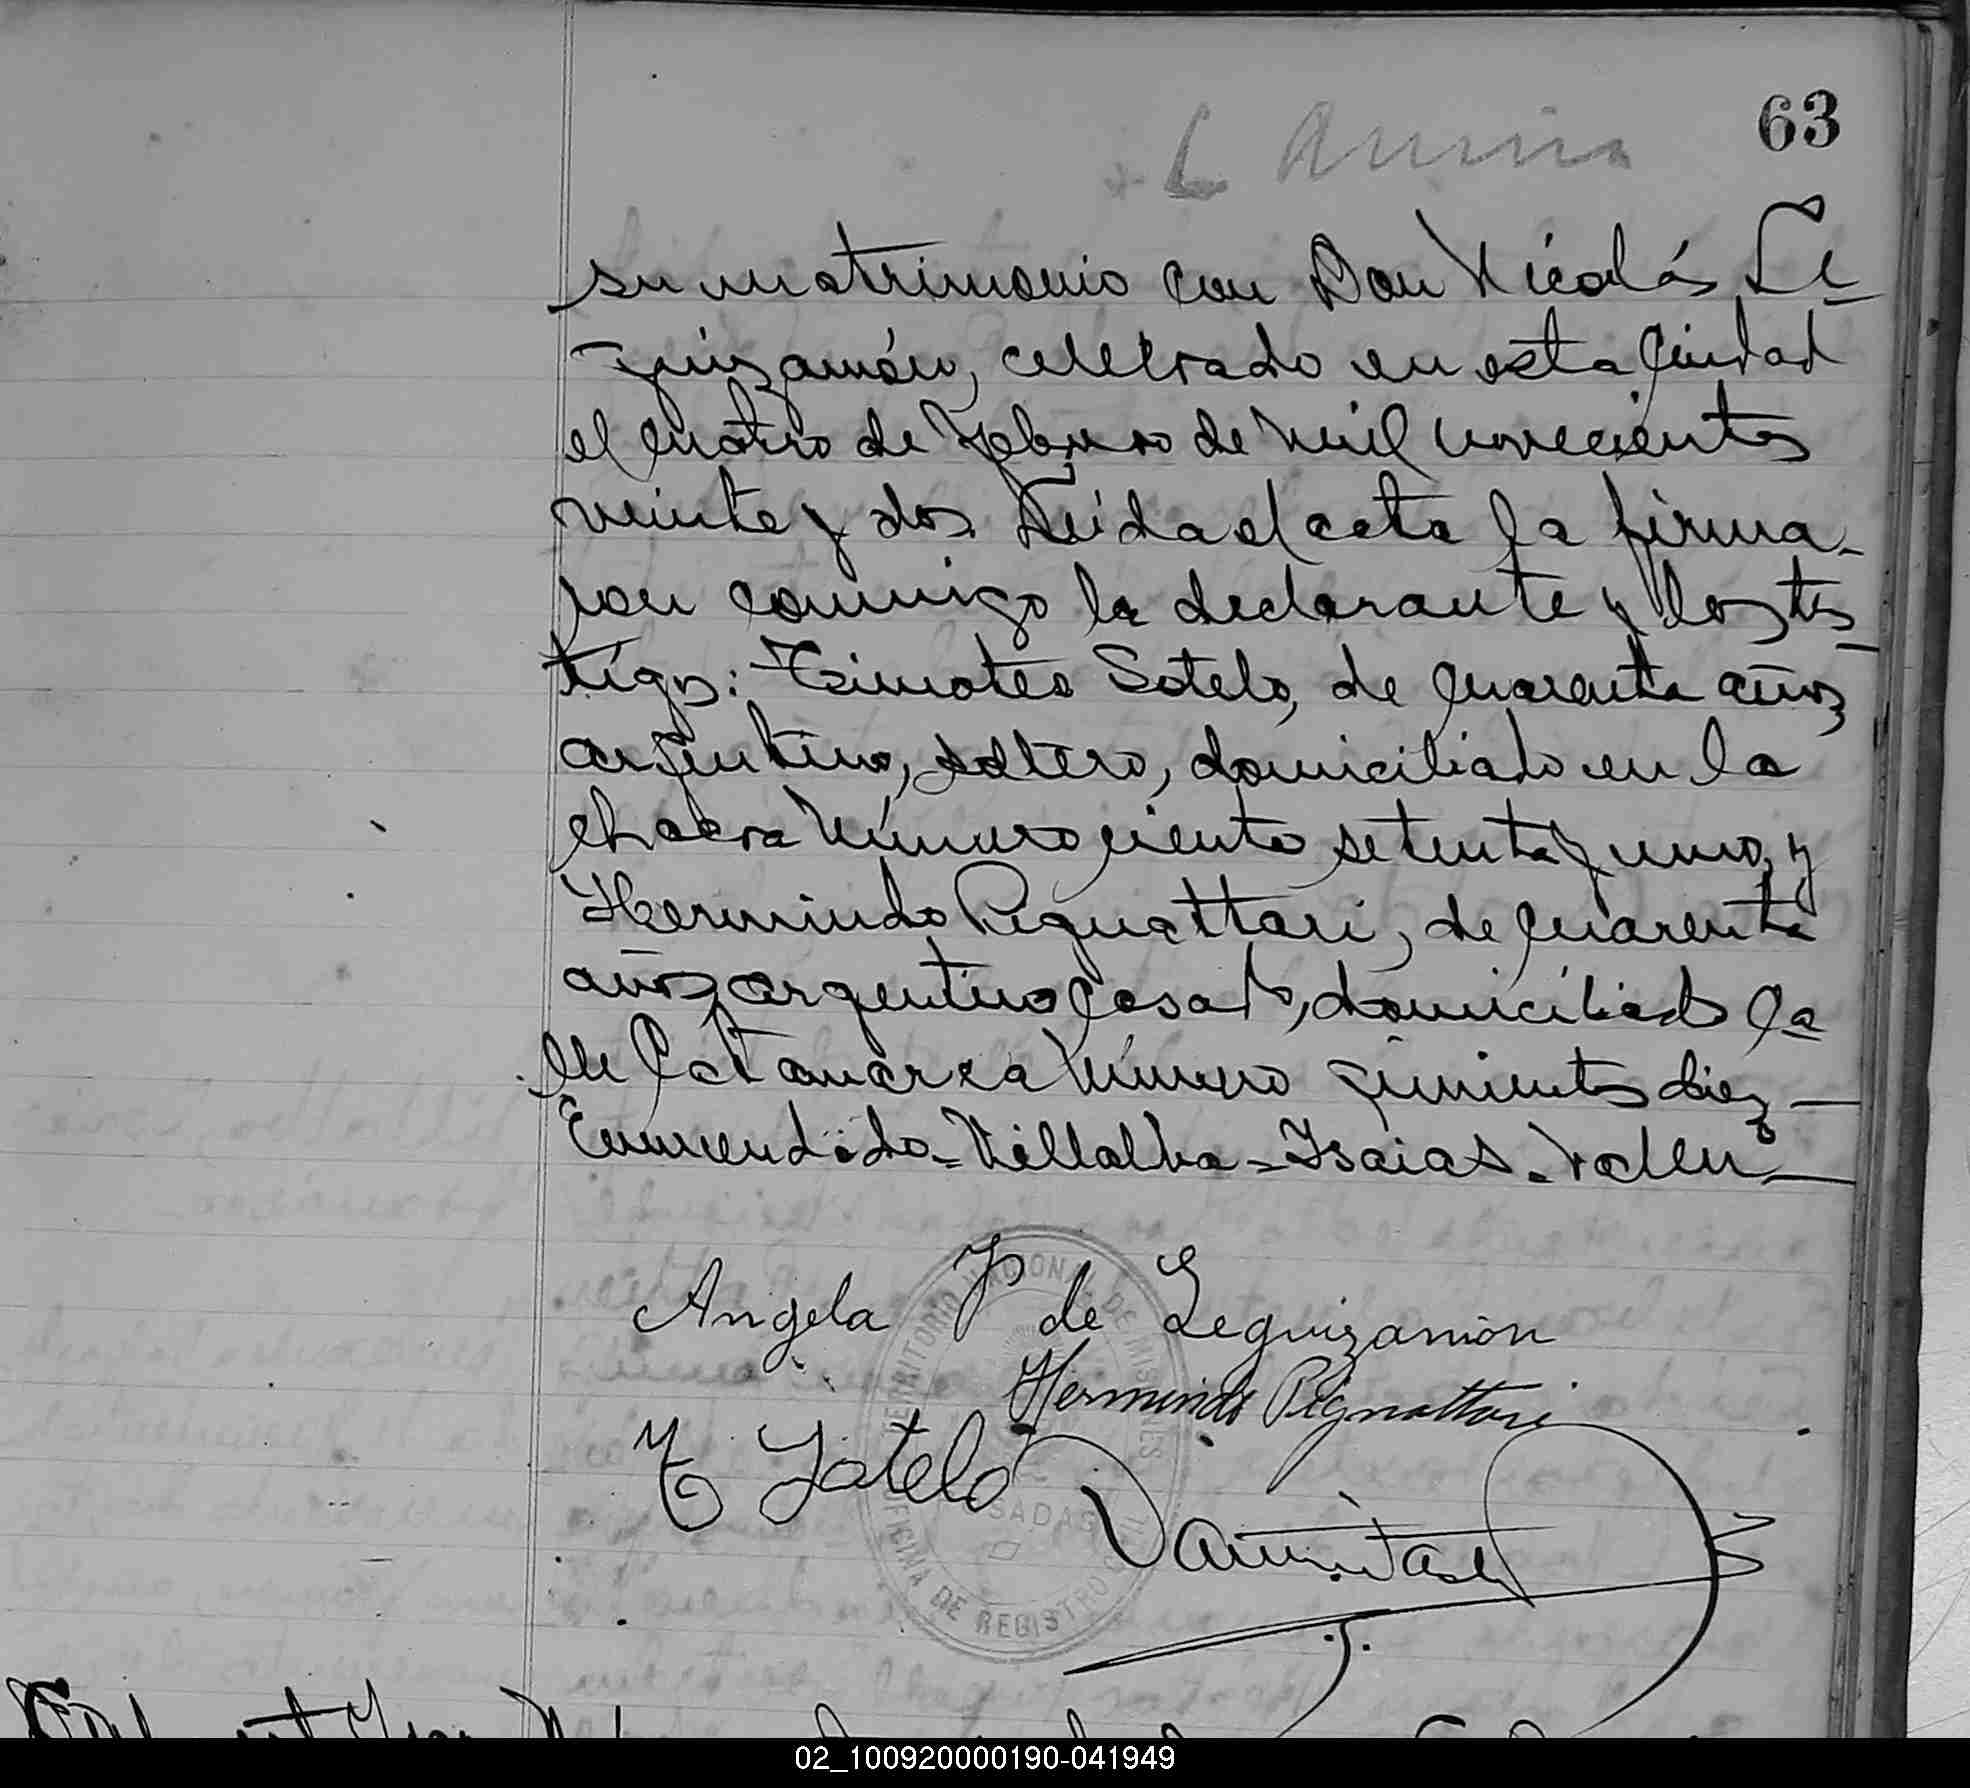 63
su matrimonio con Don Nicolás Le-
guizamón, celebrado en esta Ciudad
el cuatro de Febrero de mil novecientos
veinte y dos. Leida el acta la firma-
ron conmigo la declarante y los tes-
tigos: Timoteo Sotelo, de cuarenta años
argentino, soltero, domiciliado en la
chacra número ciento setenta y uno, y
Hermindo Pignattari, de cuarenta
años, argentino casado, domiciliado ca-
lle Catamarca número quinientos diez —
Enmendado - Villalba - Isaias - valen —
Angela P de Leguizamón
Hermindo Pignattari
T Sotelo
TERRITORIO NACIONAL DE MISIONES
POSADAS
OFICINA DE REGISTRO CIVIL
02_100920000190-041949